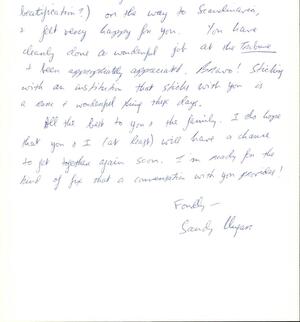 beatification?) on the way to Scandinavia,
& felt very happy for you. You have
clearly done a wonderful job at the Tribune
& been appropriately appreciated. Bravo! Sticking
with an institution that sticks with you is
a rare & wonderful thing these days.
All the best to you & the family. I do hope
that you & I (at least) will have a chance
to get together again soon. I'm ready for the
kind of fix that a conversation with you provides!
Fondly —
Sandy